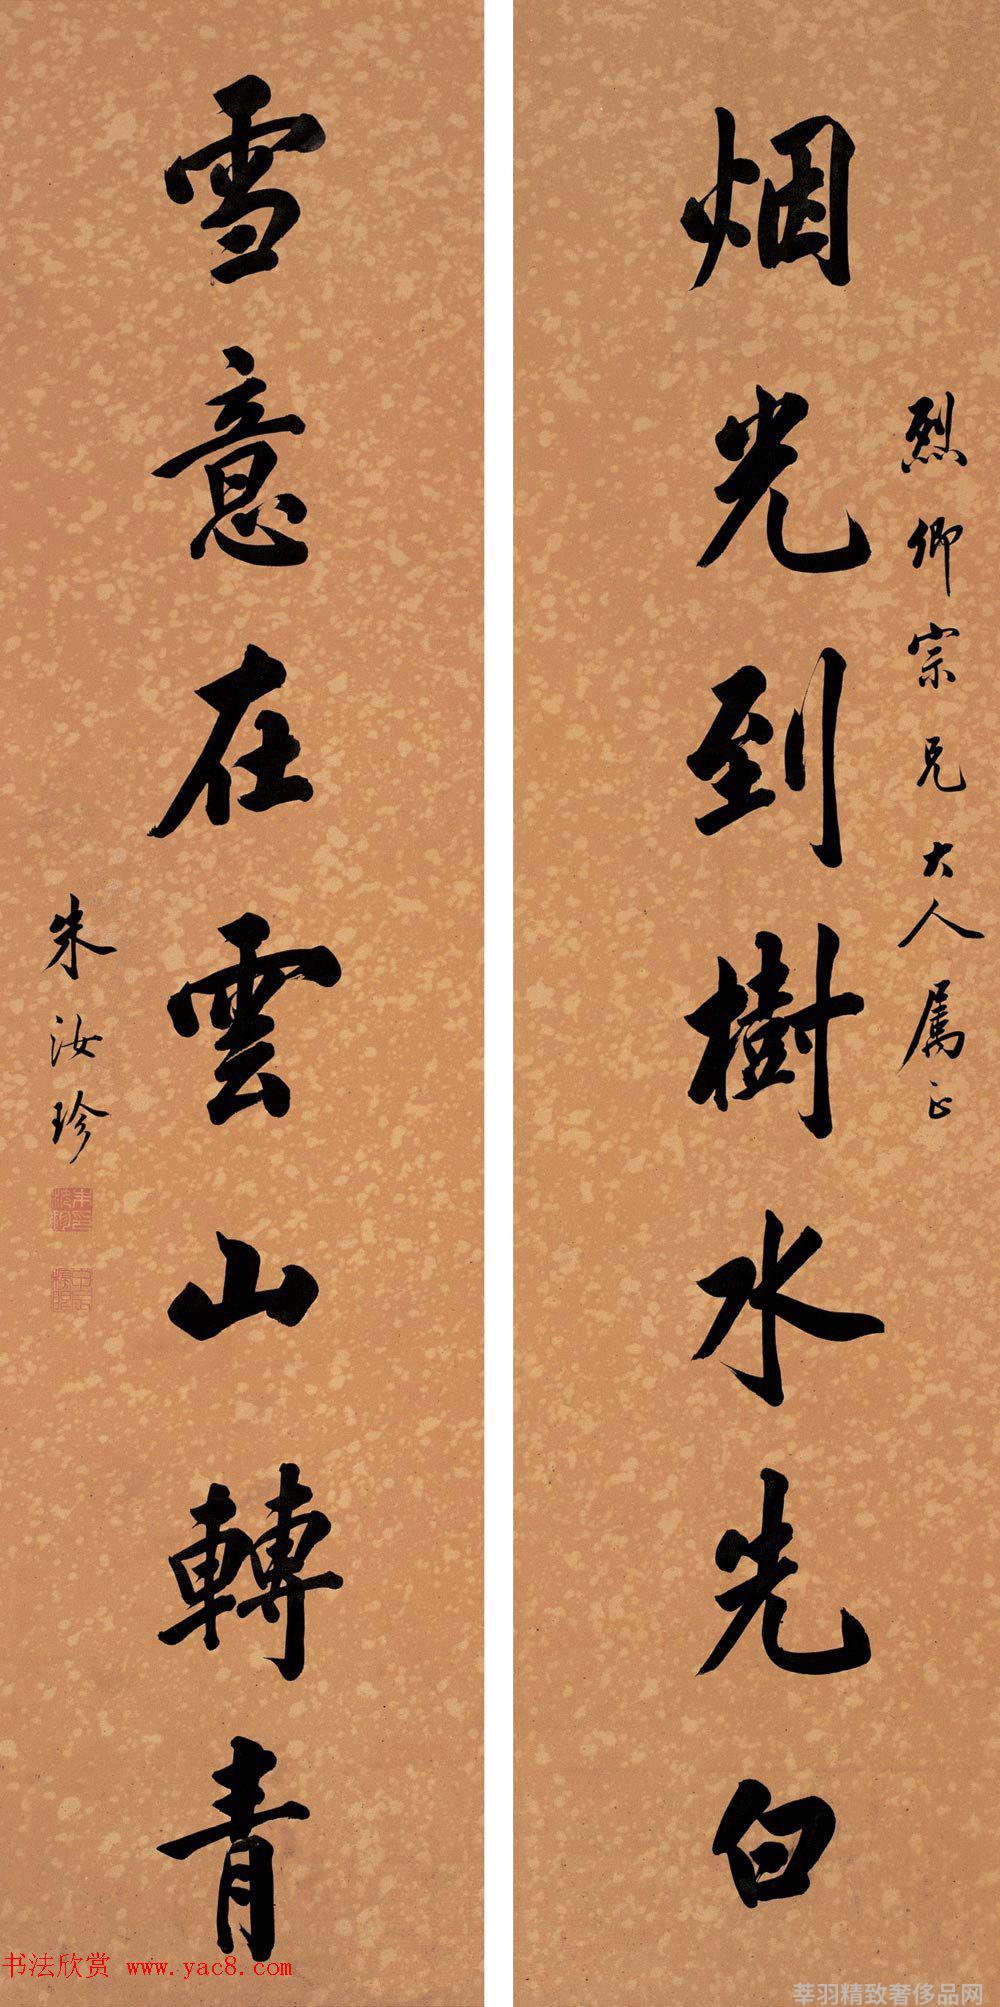 烈卿宗兄大人属正
烟光到樹水先白
雪意在雲山轉青
朱汝珍
书法欣赏 www.yac8.com
莘羽精致奢侈品网